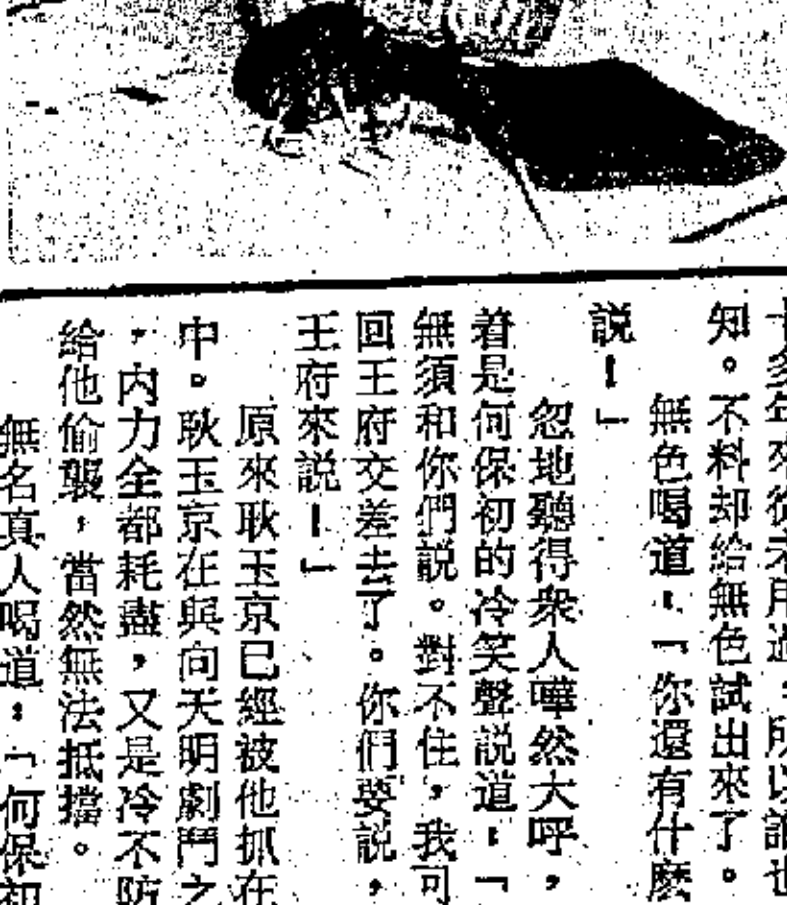 十多年來從未用過，所以誰也
知。不料却給無色試出來了。
無色喝道：「你還有什麽
説！」
忽地聽得衆人嘩然大呼，
着是何保初的冷笑聲説道：「
無須和你們説。對不住，我可
回王府交差去了。你們要説，
王府來説！」
原來耿玉京已經被他抓在
中。耿玉京在與向天明劇鬥之
，内力全都耗盡，又是冷不防
給他偷襲，當然無法抵擋。
無名真人喝道：「何保初